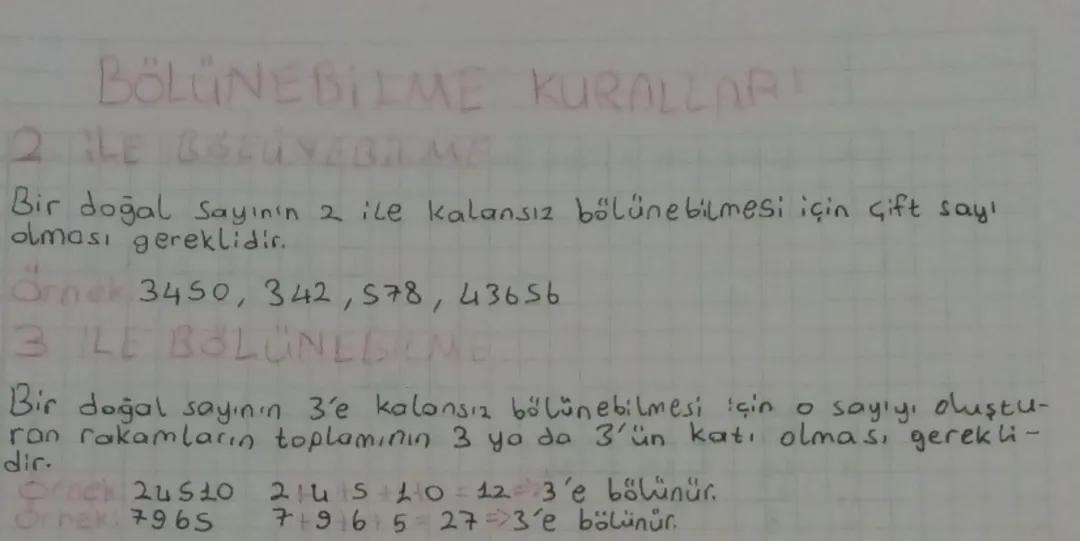 BÖLÜNEBİLME KURALLARI
2 İLE BÖLÜNEBİLME
Bir doğal sayının 2 ile kalansız bölünebilmesi için çift sayı
olması gereklidir.
Örnek 3450, 342, 578, 43656
3 İLE BÖLÜNEBİLME
Bir doğal sayının 3'e kalansız bölünebilmesi için o sayıyı oluştu-
ran rakamların toplamının 3 ya da 3'ün katı olması gerekli-
dir.
Örnek 24510 2+4+5+1+0=12=>3'e bölünür.
Örnek: 7965 7+9+6+5=27=>3'e bölünür.